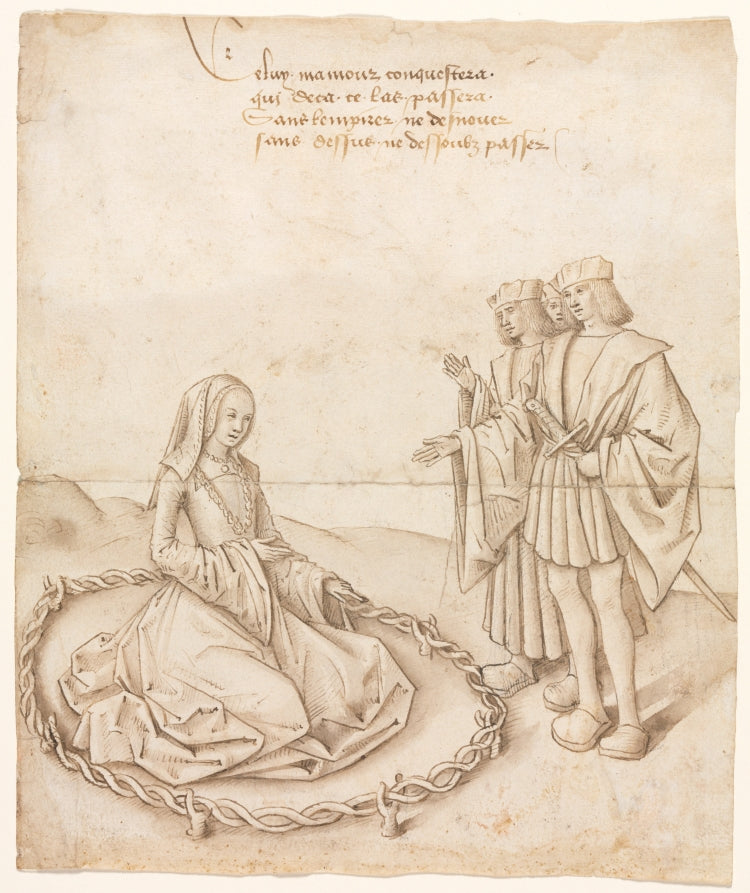 Celuy mamour conquestera
qui deca ce las passera
Sans lempirer ne desnouer
sans dessus ne dessoubz passer